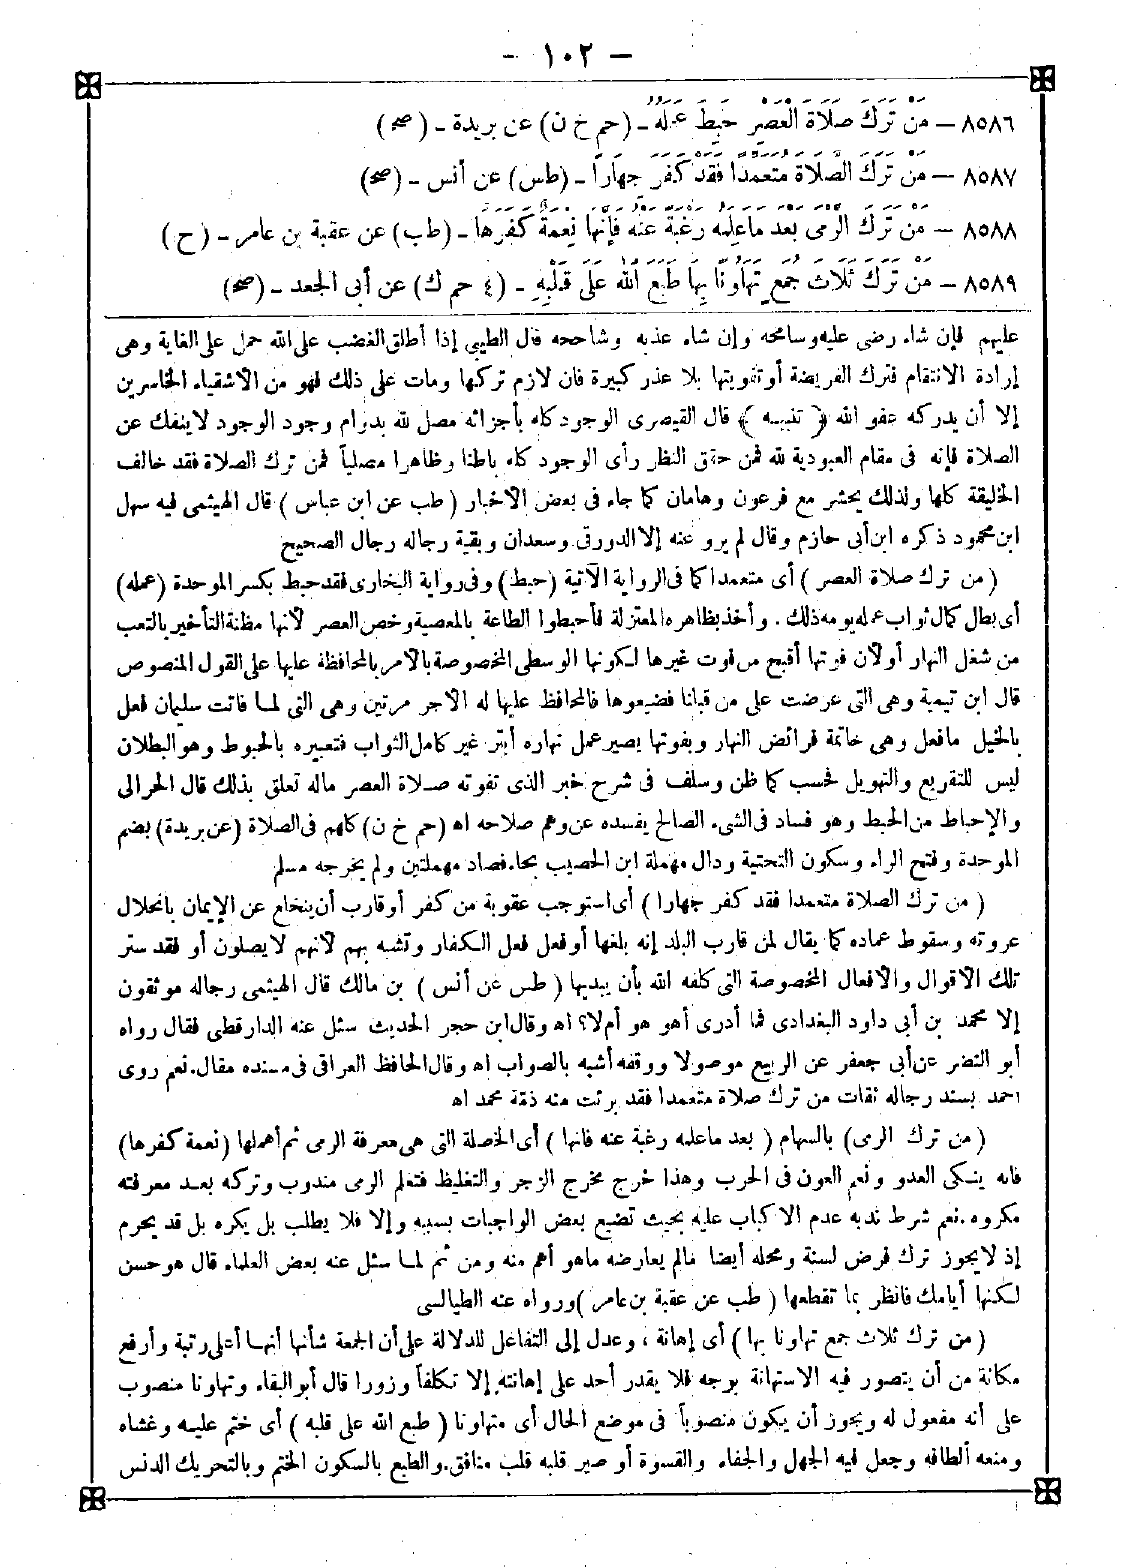 - ١٠٢ -
٨٥٨٦ - مَنْ تَرَكَ صَلَاةَ الْعَصْرِ حَبِطَ عَمَلُهُ - (حم خ ن) عن بريدة - (صح)
٨٥٨٧ - مَنْ تَرَكَ الصَّلَاةَ مُتَعَمِّدًا فَقَدْ كَفَرَ جِهَارًا - (طس) عن أنس - (صح)
٨٥٨٨ - مَنْ تَرَكَ الرَّمْىَ بَعْدَ مَا عَلِمَهُ رَغْبَةً عَنْهُ فَإِنَّهَا نِعْمَةٌ كَفَرَهَا - (طب) عن عقبة بن عامر - (ح)
٨٥٨٩ - مَنْ تَرَكَ ثَلَاثَ جُمَعٍ تَهَاوُنًا بِهَا طَبَعَ اللهُ عَلَى قَلْبِهِ - (٤ حم ك) عن أبى الجعد - (صح)
عليهم فإن شاء رضى عليه وسامحه وإن شاء عذبه وشاححه قال الطيبى إذا أطلق الغضب على الله حمل على الغاية وهى
إرادة الانتقام فترك الفريضة أو تفويتها بلا عذر كبيرة فان لازم تركها ومات على ذلك فهو من الأشقياء الخاسرين
إلا أن يدركه عفو الله ﴿ تنبيه ﴾ قال القيصرى الوجود كله بأجزائه مصل لله بدوام وجود الوجود لا ينفك عن
الصلاة فإنه فى مقام العبودية لله فمن حقق النظر رأى الوجود كله باطنا وظاهرا مصلياً فمن ترك الصلاة فقد خالف
الخليقة كلها ولذلك يحشر مع فرعون وهامان كما جاء فى بعض الاخبار ( طب عن ابن عباس ) قال الهيثمى فيه سهل
ابن محمود ذكره ابن أبى حازم وقال لم يرو عنه إلا الدورقى وسعدان وبقية رجاله رجال الصحيح
( من ترك صلاة العصر ) أى متعمدا كما فى الرواية الآتية (حبط) وفى رواية البخارى فقد حبط بكسر الموحدة (عمله)
أى بطل كمال ثواب عمله يومه ذلك . وأخذ بظاهره المعتزلة فأحبطوا الطاعة بالمعصية وخص العصر لأنها مظنة التأخير بالتعب
من شغل النهار أو لان فوتها أقبح من فوت غيرها لكونها الوسطى المخصوصة بالامر بالمحافظة عليها على القول المنصوص
قال ابن تيمية وهى التى عرضت على من قبلنا فضيعوها فالمحافظ عليها له الأجر مرتين وهى التى لما فاتت سليمان فعل
بالخيل ما فعل وهى خاتمة فرائض النهار وبفوتها يصير عمل نهاره أبتر غير كامل الثواب فتعبيره بالحبوط وهو البطلان
ليس للتقريع والتهويل فحسب كما ظن وسلف فى شرح خبر الذى تفوته صلاة العصر ماله تعلق بذلك قال الحرالى
والإحباط من الحبط وهو فساد فى الشىء الصالح يفسده عن وهم صلاحه اه (حم خ ن) كلهم فى الصلاة (عن بريدة) بضم
الموحدة وفتح الراء وسكون التحتية ودال مهملة ابن الحصيب بحاء فصاد مهملتين ولم يخرجه مسلم
( من ترك الصلاة متعمدا فقد كفر جهارا ) أى استوجب عقوبة من كفر أو قارب أن ينخلع عن الإيمان بانحلال
عروته وسقوط عماده كما يقال لمن قارب البلد إنه بلغها أو فعل فعل الكفار وتشبه بهم لأنهم لا يصلون أو فقد ستر
تلك الاقوال والأفعال المخصوصة التى كلفه الله بأن يبديها ( طس عن أنس ) بن مالك قال الهيثمى رجاله موثقون
إلا محمد بن أبى داود البغدادى فما أدرى أهو هو أم لا؟ اه وقال ابن حجر الحديث سئل عنه الدارقطى فقال رواه
أبو النضر عن أبى جعفر عن الربيع موصولا ووقفه أشبه بالصواب اه وقال الحافظ العراقى فى مسنده مقال . نعم روى
احمد بسند رجاله ثقات من ترك صلاة متعمدا فقد برئت منه ذمة محمد اه
( من ترك الرمى) بالسهام ( بعد ما علمه رغبة عنه فانها ) أى الخصلة التى هى معرفة الرمى ثم أهملها (نعمة كفرها)
فانه ينكى العدو ونعم العون فى الحرب وهذا خرج مخرج الزجر والتغليظ فتعلم الرمى مندوب وتركه بعد معرفته
مكروه . نعم شرط ندبه عدم الاكباب عليه بحيث تضيع بعض الواجبات بسببه وإلا فلا يطلب بل يكره بل قد يحرم
إذ لا يجوز ترك فرض لسنة ومحله أيضا مالم يعارضه ما هو أهم منه ومن ثم لما سئل عنه بعض العلماء قال هو حسن
لكنها أيامك فانظر بما تقطعها ( طب عن عقبة بن عامر ) ورواه عنه الطيالسى
( من ترك ثلاث جمع تهاونا بها ) أى إهانة ، وعدل إلى التفاعل للدلالة على أن الجمعة شأنها أنها أعلى رتبة وأرفع
مكانة من أن يتصور فيه الاستهانة بوجه فلا يقدر أحد على إهانته إلا تكلفاً وزورا قال أبو البقاء وتهاونا منصوب
على أنه مفعول له ويجوز أن يكون منصوباً فى موضع الحال أى متهاونا ( طبع الله على قلبه ) أى ختم عليه وغشاه
ومنعه ألطافه وجعل فيه الجهل والجفاء والقسوة أو صير قلبه قلب منافق والطبع بالسكون الختم وبالتحريك الدنس